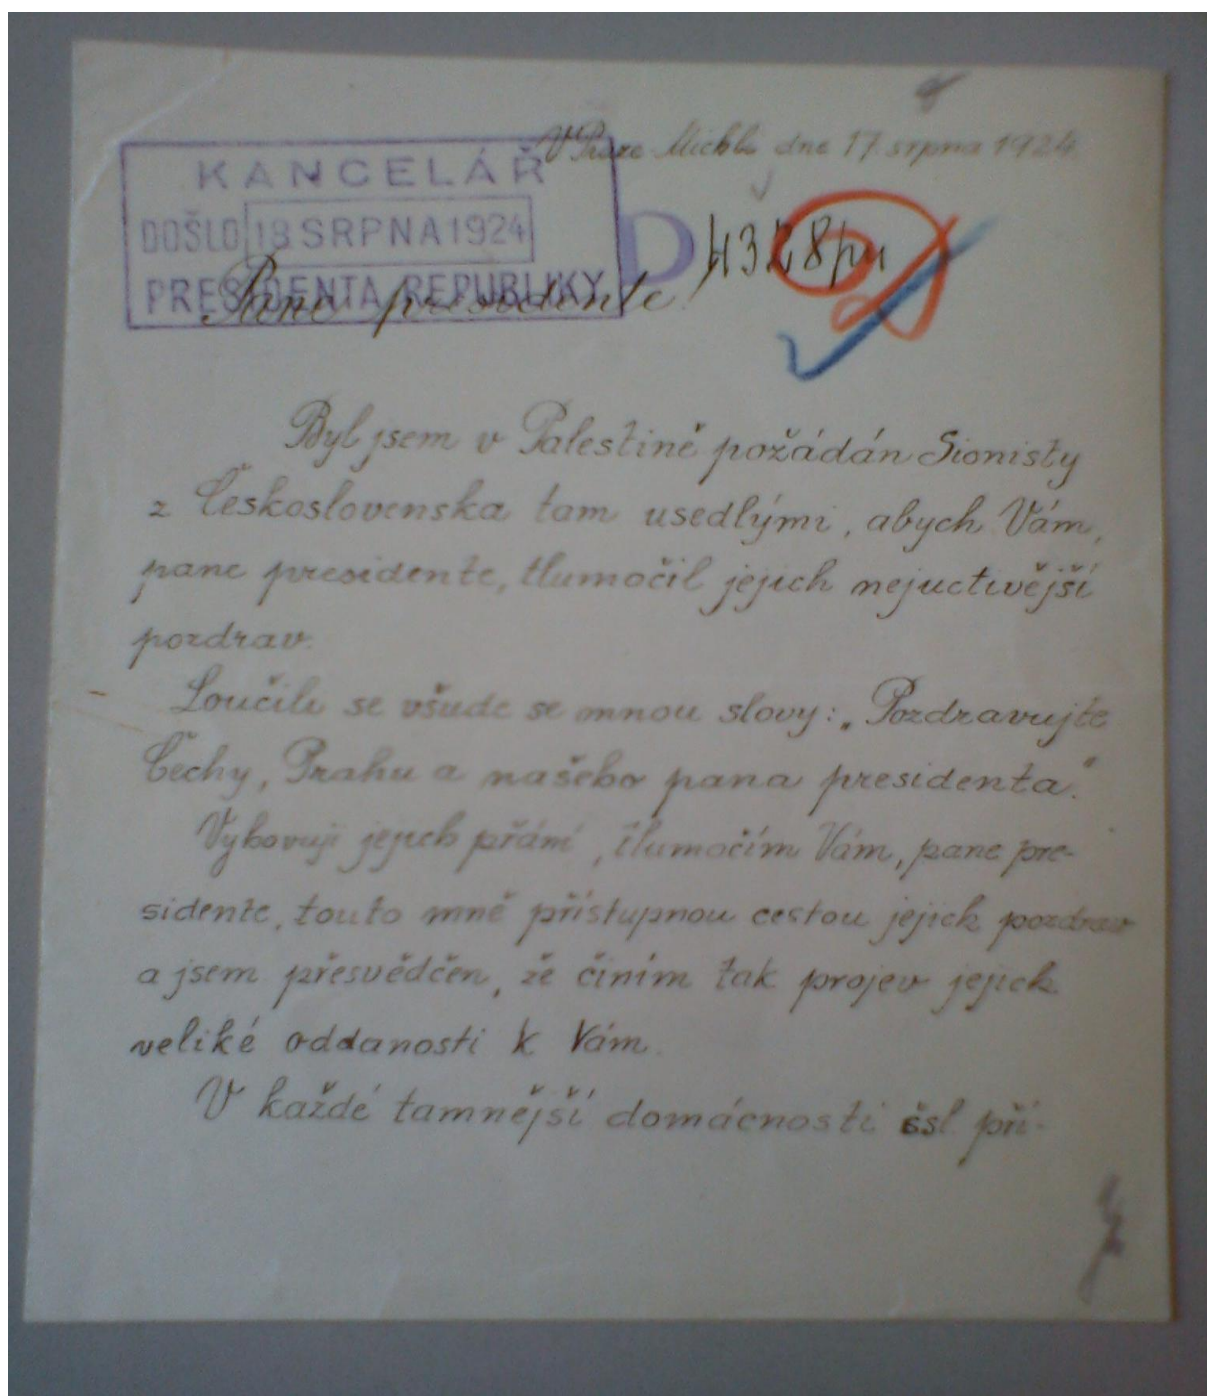 V Praze Michli dne 17. srpna 1924
KANCELÁŘ
DOŠLO 18 SRPNA 1924
PRESIDENTA REPUBLIKY
D 4328/24
Pane presidente!
Byl jsem v Palestině požádán Sionisty
z Československa tam usedlými, abych Vám,
pane presidente, tlumočil jejich nejuctivější
pozdrav.
Loučili se všude se mnou slovy: „Pozdravujte
Čechy, Prahu a našeho pana presidenta."
Vyhovuji jejich přání, tlumočím Vám, pane pre-
sidente, touto mně přístupnou cestou jejich pozdrav
a jsem přesvědčen, že činím tak projev jejich
veliké oddanosti k Vám.
V každé tamnější domácnosti čsl. pří-